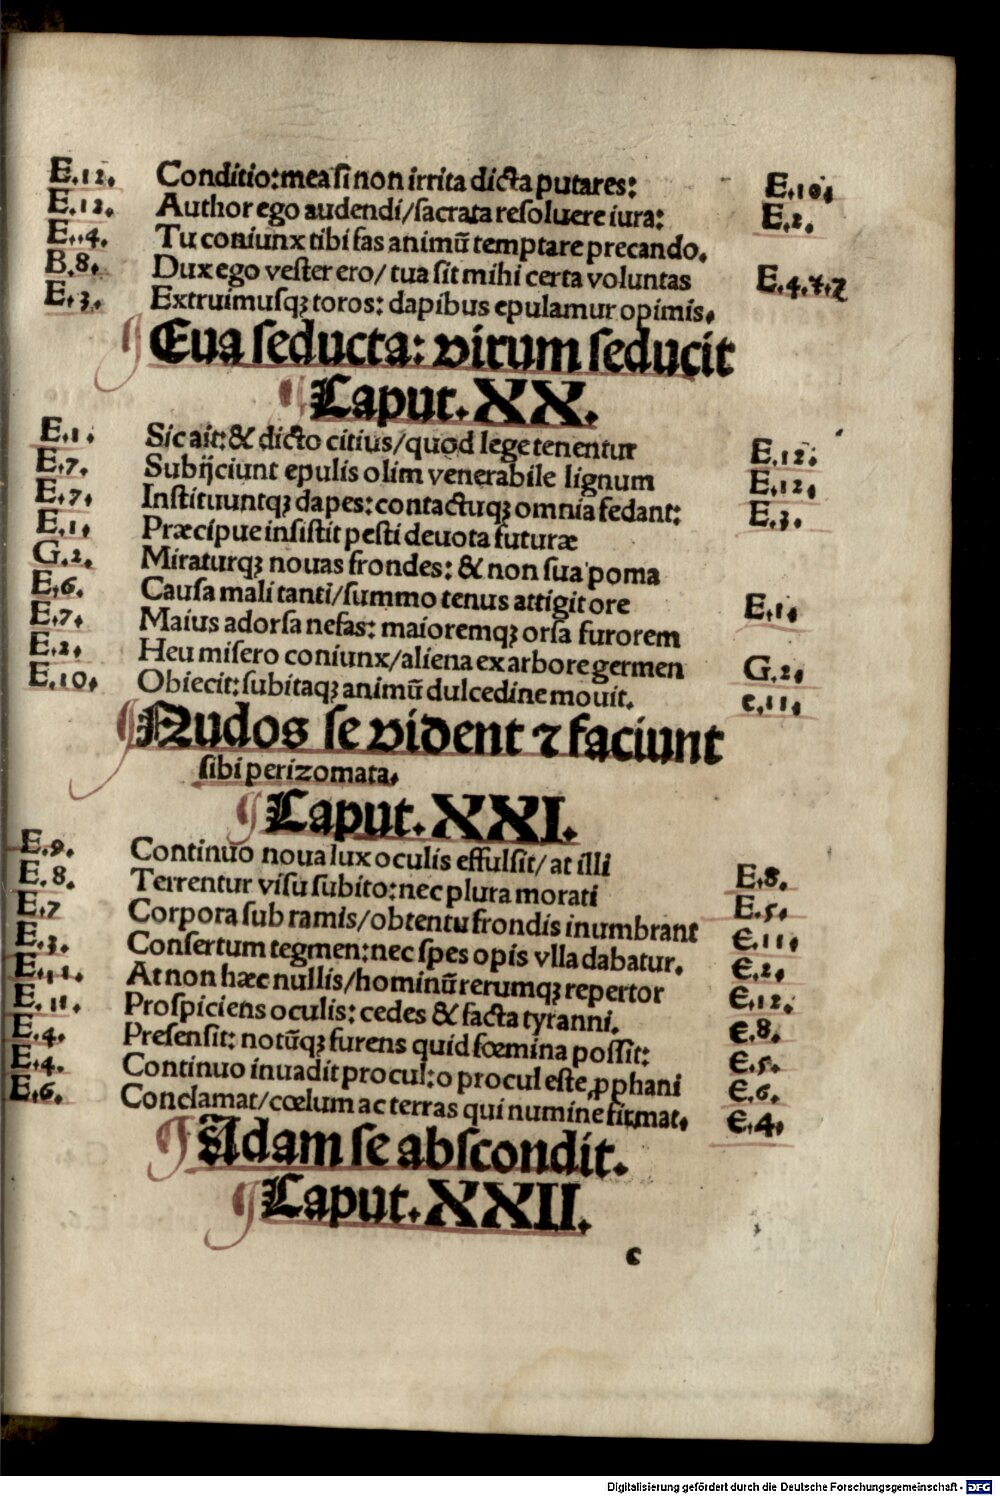 E.12. Conditio: mea si non irrita dicta putares: E.10.
E.12. Author ego audendi/sacrata resoluere iura: E.2.
E.4. Tu coniunx tibi fas animū temptare precando.
B.8. Dux ego vester ero/ tua sit mihi certa voluntas E.4.&.7
E.3. Extruimusqꝫ toros: dapibus epulamur opimis.
¶ Eua seducta: virum seducit
¶ Caput. XX.
E.1. Sic ait: & dicto citius/quod lege tenentur E.12.
E.7. Subijciunt epulis olim venerabile lignum E.12.
E.7. Instituuntqꝫ dapes: contactuqꝫ omnia fedant: E.3.
E.1. Præcipue insistit pesti deuota futuræ
G.2. Miraturqꝫ nouas frondes: & non sua poma
E.6. Causa mali tanti/summo tenus attigit ore E.1.
E.7. Maius adorsa nefas: maioremqꝫ orsa furorem
E.2. Heu misero coniunx/aliena ex arbore germen G.2.
E.10. Obiecit: subitaqꝫ animū dulcedine mouit. e.11.
¶ Nudos se vident ⁊ faciunt
sibi perizomata.
¶ Caput. XXI.
E.9. Continuo noua lux oculis effulsit/ at illi E.8.
E.8. Terrentur visu subito: nec plura morati E.5.
E.7 Corpora sub ramis/obtentu frondis inumbrant E.11.
E.3. Consertum tegmen: nec spes opis vlla dabatur. E.2.
At non hæc nullis/hominū rerumqꝫ repertor E.12.
E.11. Prospiciens oculis: cedes & facta tyranni. E.8.
E.4. Presensit: notūqꝫ furens quid fœmina possit: E.5.
E.4. Continuo inuadit procul: o procul este ꝓphani E.6.
E.6. Conclamat/cœlum ac terras qui numine firmat. E.4.
¶ Adam se abscondit.
¶ Caput. XXII.
c
Digitalisierung gefördert durch die Deutsche Forschungsgemeinschaft - DFG